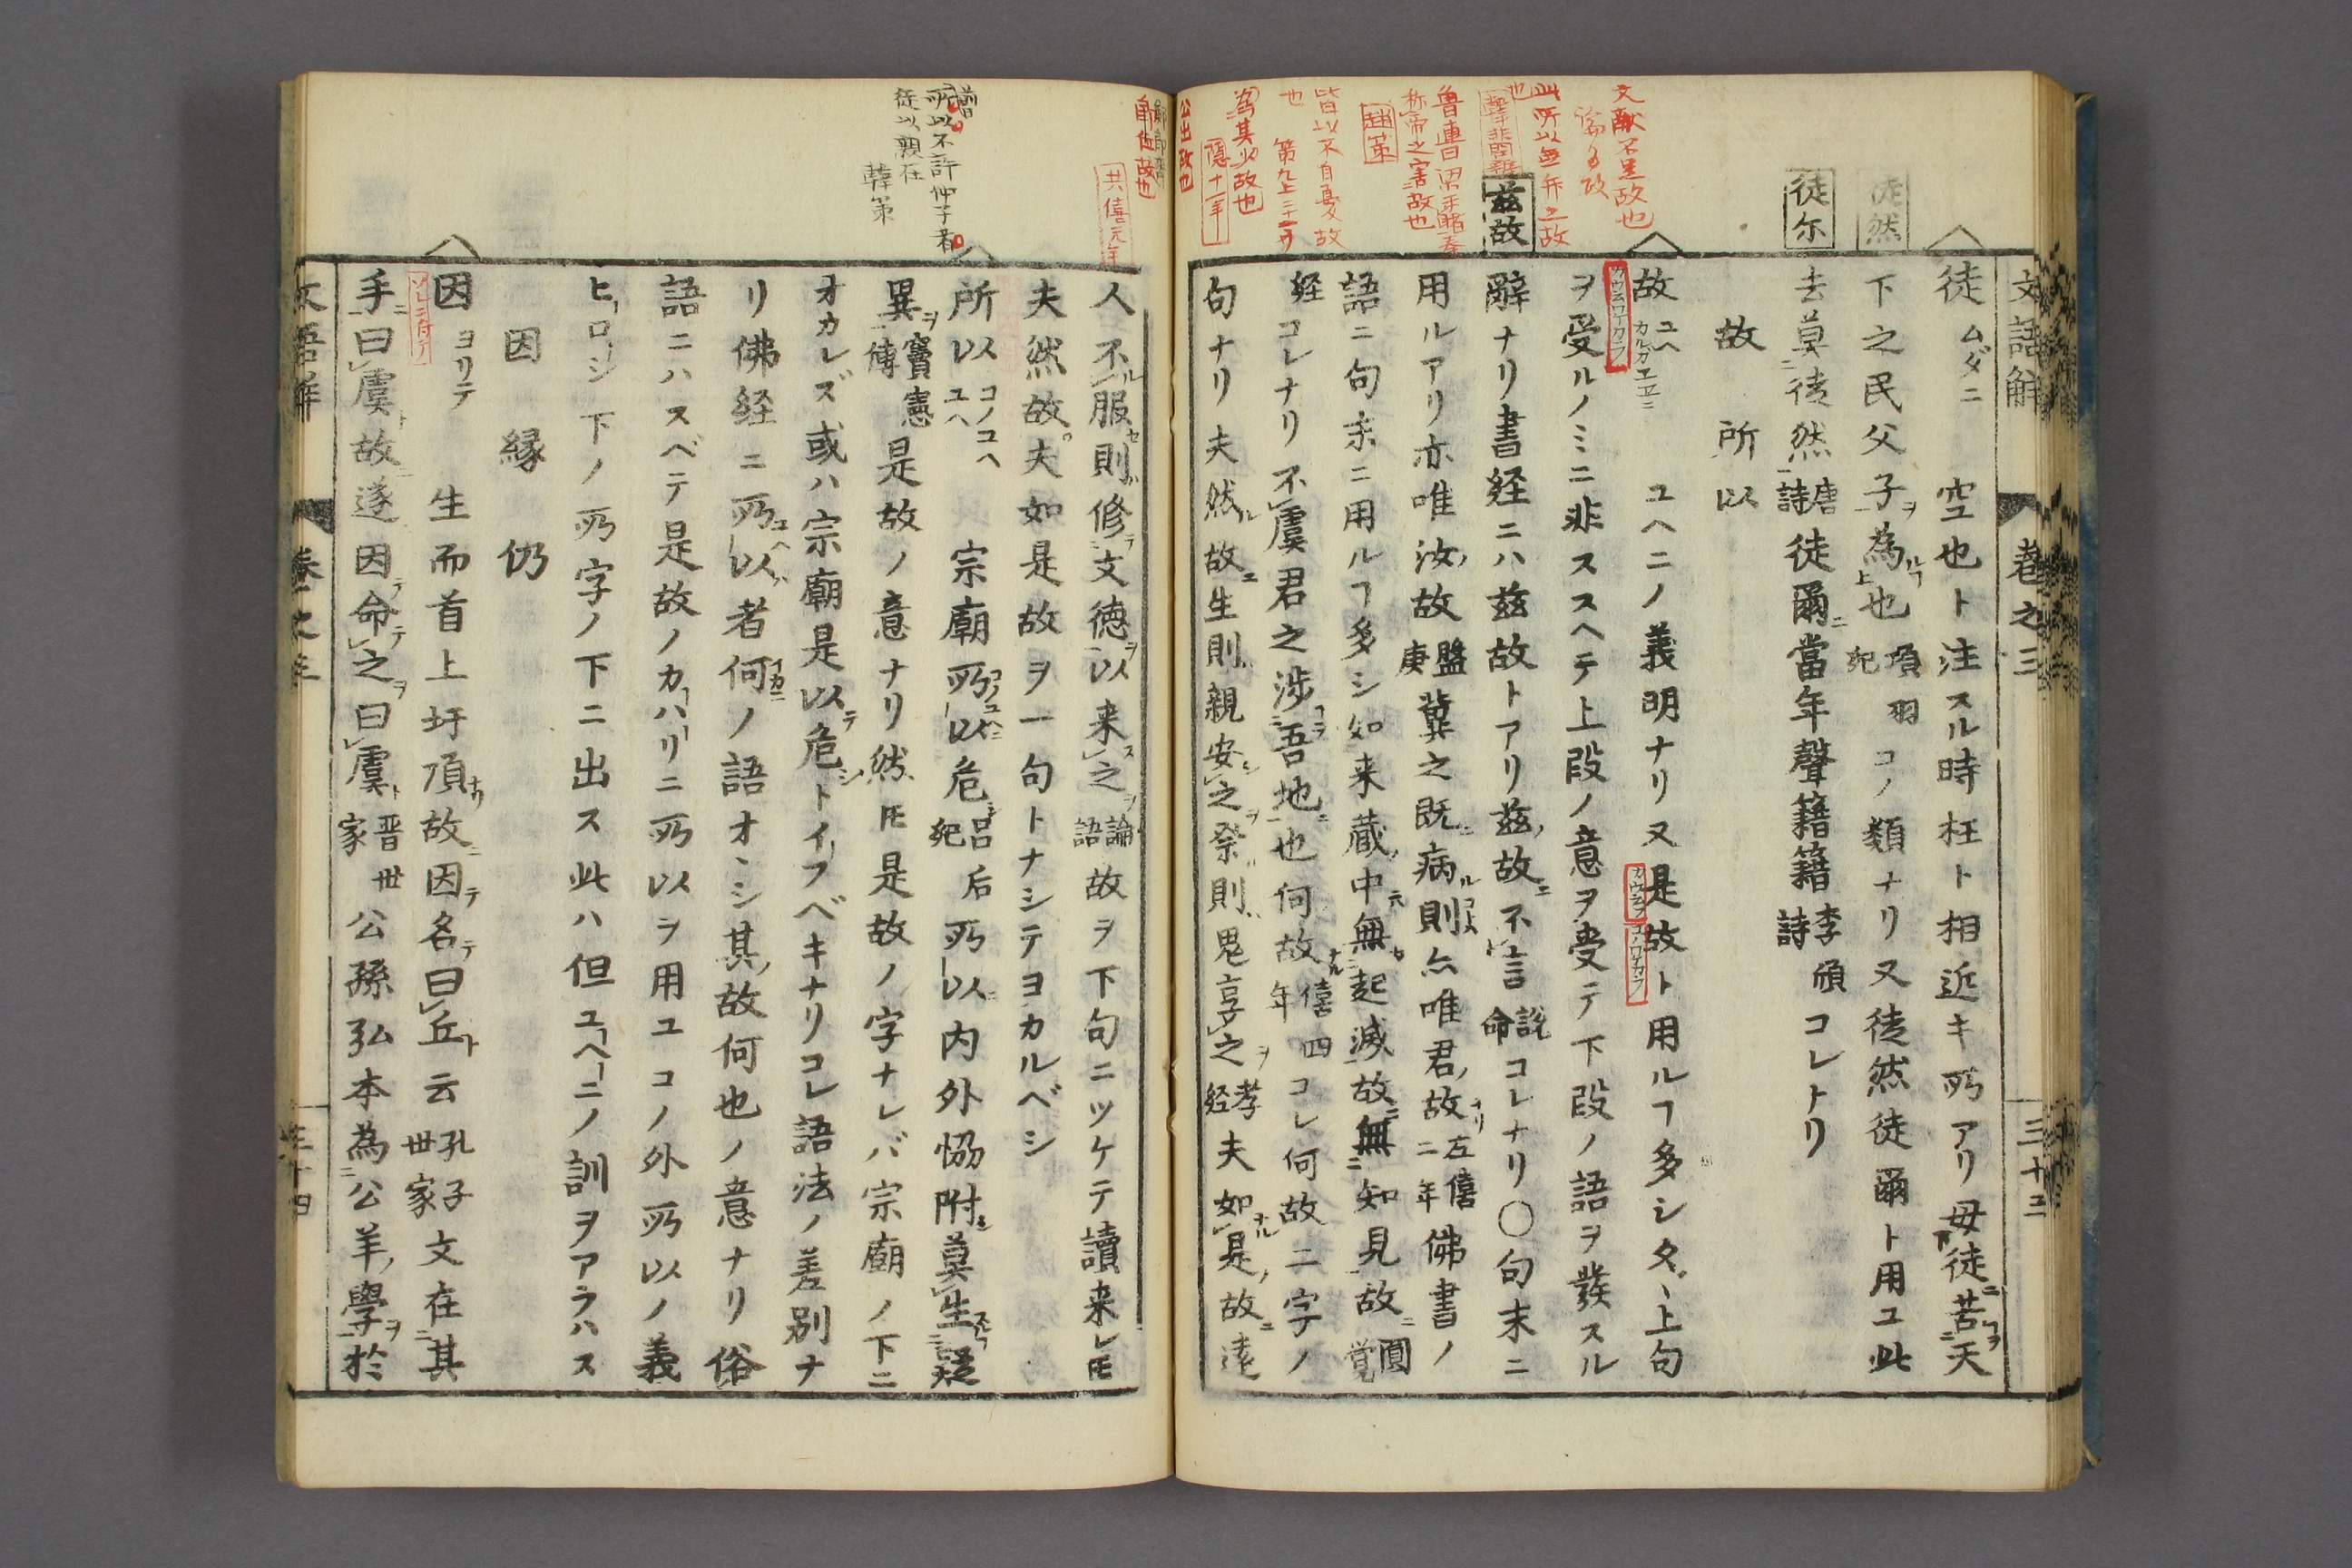 文語解 卷之三 三十三
徒然
徒尓
徒 ムダニ 空也ト注スル時枉ト相近キ所アリ毋徒苦天
下之民父子為也 項羽紀 コノ類ナリ又徒然徒爾ト用ユ此
去莫徒然 唐詩 徒爾當年聲籍籍 李頎詩 コレトリ
故 所以
文献不足故也
此所以無弁之故也
茲故
魯連曰梁未睹秦
称帝之害故也
趙策
皆以不自憂故
也
為其少故也
隠十一年
故 ユヘ カルガユエニ ユヘニノ義明ナリ又是故ト用ルヿ多シタヾ上句
ヲ受ルノミニ非ススヘテ上段ノ意ヲ受テ下段ノ語ヲ発スル
辭ナリ書経ニハ茲故トアリ茲故不言 説命 コレナリ〇句末ニ
用ルアリ亦唯汝故 盤庚 冀之既病則亦唯君故 左僖二年 佛書ノ
語ニ句末ニ用ルヿ多シ如来蔵中無起滅故無知見故 圓覚
経 コレナリ不虞君之渉吾地也何故 僖四年 コレ何故二字ノ
句ナリ夫然故生則親安之祭則鬼享之 孝経 夫如是故遠
公出故也
共僖元年
人不服則修文徳以来之 論語 故ヲ下句ニツケテ讀来レ𪜈
夫然故夫如是故ヲ一句トナシテヨカルベシ
所以不許仲子者
徒以親在
韓策
所以 コノユヘ ユヘ 宗廟所以危 呂后紀 所以内外恊附莫生疑
異 竇憲傳 是故ノ意ナリ然𪜈是故ノ字ナレバ宗廟ノ下ニ
オカレズ或ハ宗廟是以危トイフベキナリコレ語法ノ差別ナ
リ佛経ニ所以者何ノ語オヽシ其故何也ノ意ナリ俗
語ニハスベテ是故ノカハリニ所以ヲ用ユコノ外所以ノ義
ヒロシ下ノ所字ノ下ニ出ス此ハ但ユヘニノ訓ヲアラハス
因 縁 仍
因 ヨリテ 生而首上圩頂故因名曰丘云 孔子世家 文在其
手曰虞故遂因命之曰虞 晋世家 公孫弘本為公羊學於
文語解 卷之三 三十四